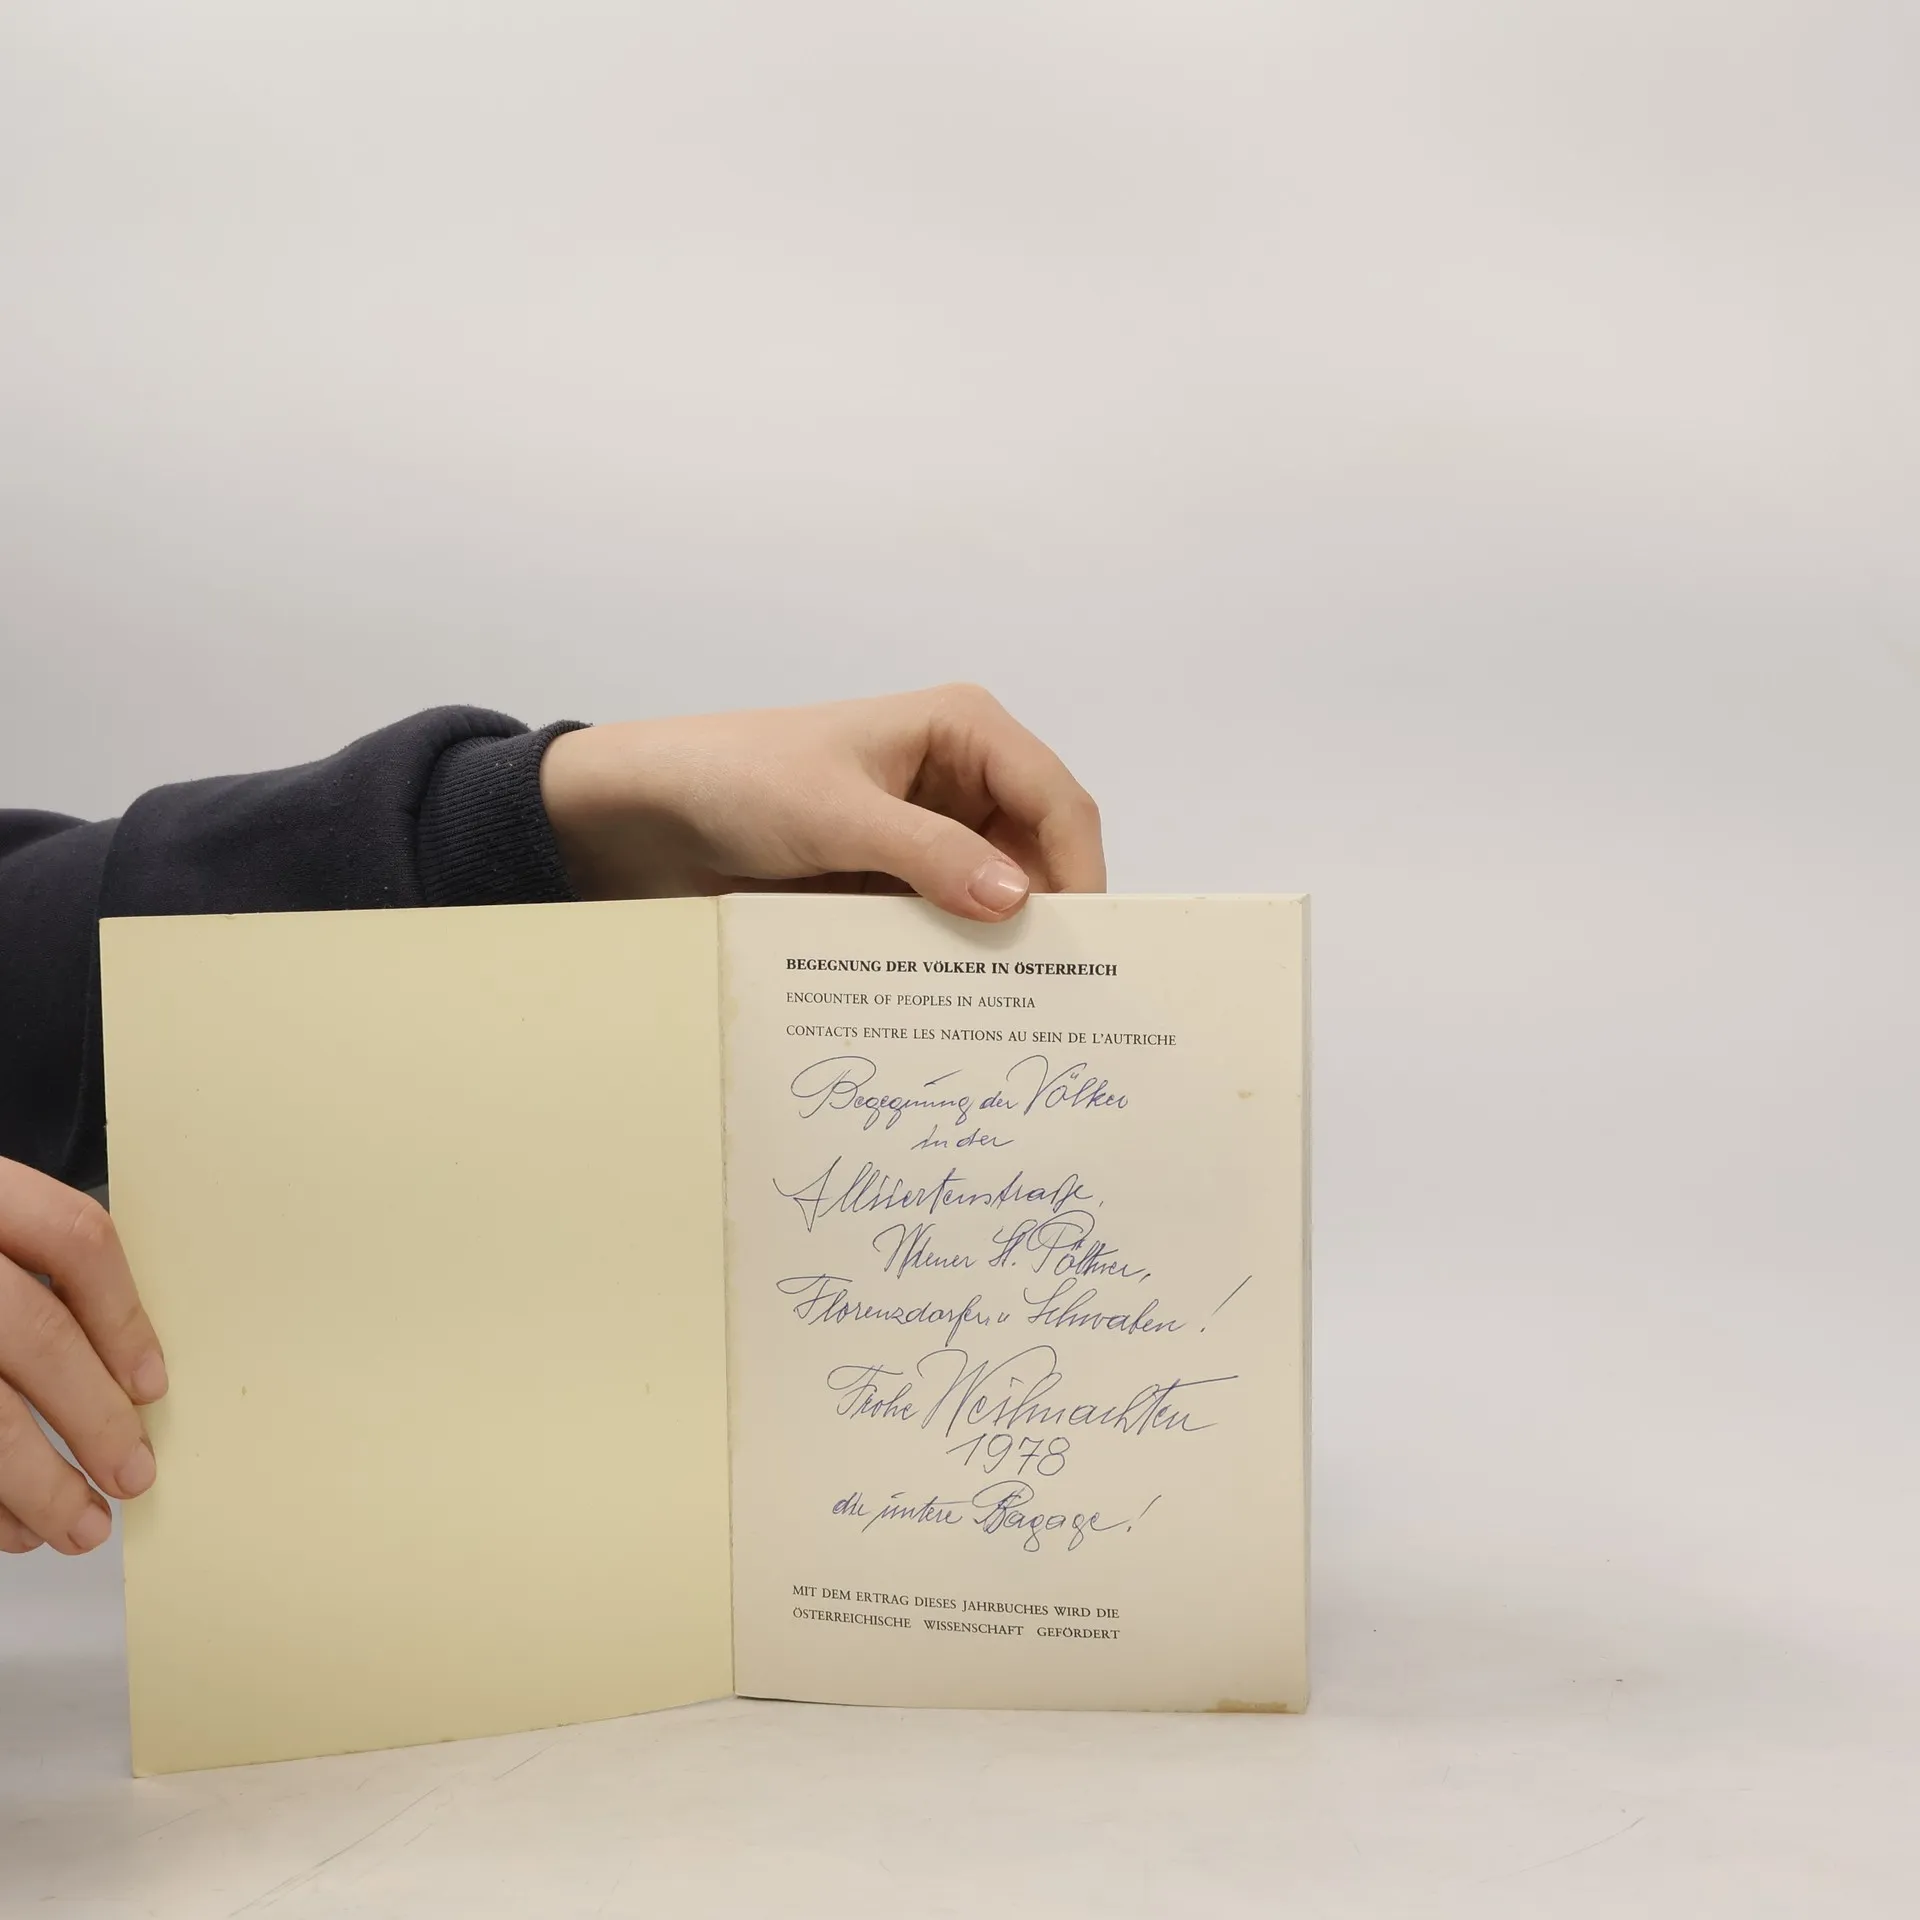 BEGEGNUNG DER VÖLKER IN ÖSTERREICH
ENCOUNTER OF PEOPLES IN AUSTRIA
CONTACTS ENTRE LES NATIONS AU SEIN DE L'AUTRICHE
Begegnung der Völker
in der
Wiener St. Pöltner,
Florenzdorfer u Schwaben!
Frohe Weihnachten
1978
die untere Bagage!
MIT DEM ERTRAG DIESES JAHRBUCHES WIRD DIE
ÖSTERREICHISCHE WISSENSCHAFT GEFÖRDERT